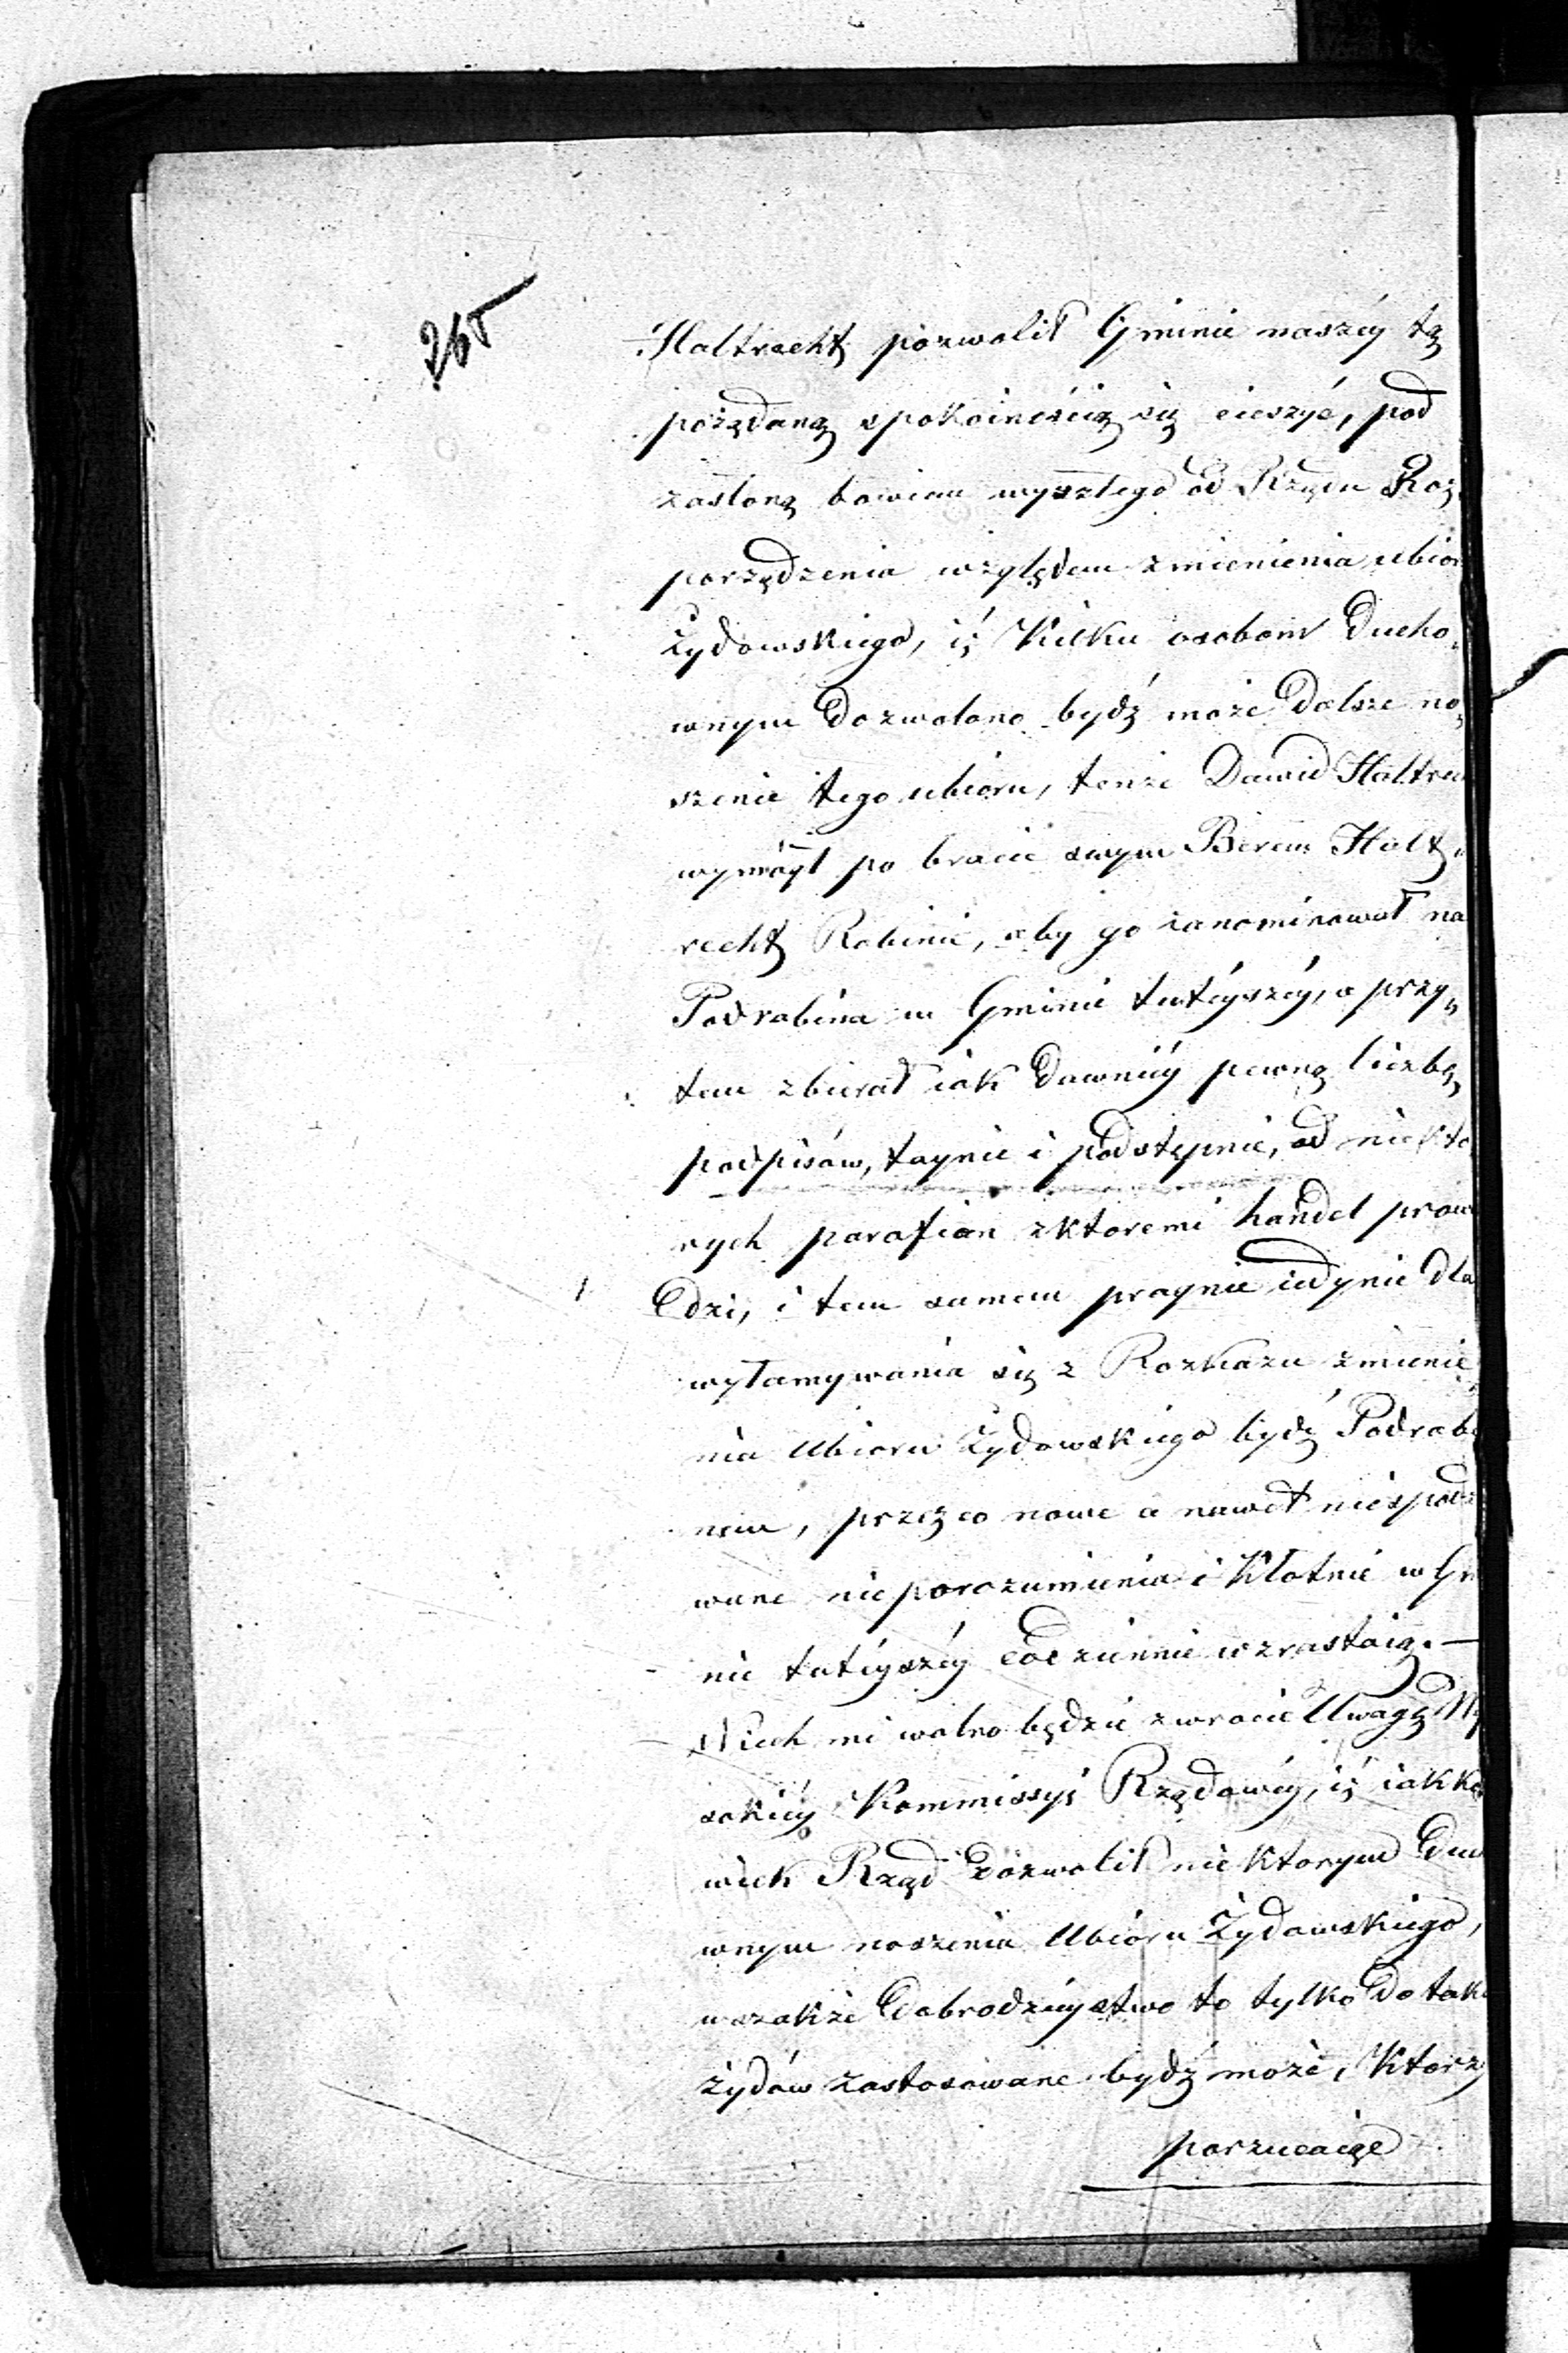 265
Holtrecht pozwolił Gminie naszéy tą
pożądaną spokoinością się cieszyć, pod
zasłoną bowiem wyszłego od Rządu Roz„
porządzenia względem zmienienia ubior
Żydowskiego, iż Kilku osobom Ducho„
wnym dozwolono bydź może dalsze no„
szenie tego ubioru, tenże Dawid Holtre
wymógł po bracie swym Berem Holt„
recht Rabinie, aby go zanominował na
Podrabina w Gminie tutéyszéy, a przy„
tem zbierał iak dawniéy pewną liczbę
podpisów, taynie i podstępnie, od niekto
rych parafian z ktoremi handel prow
dzi, i tem samem pragnie iedynie dla
wyłamywania się z Rozkazu zmienie„
nia Ubioru Żydowskiego bydź Podrabi
nem, przez co nowe a nawet niespodz
wane nieporozumienia i Kłotnie w Gm
nie tutéyszéy codziennie wzrastaią. —
Niech mi wolno będzie zwrocić Uwagę Wy
sokiéy Kommissyi Rządowéy, iż iakko
wiek Rząd dozwolił niektorym Duc
wnym noszenia Ubioru Żydowskiego,
wszakże dobrodzieystwo to tylko do taki
żydów zastosowane bydź może, Ktorzy
porzucaiąc